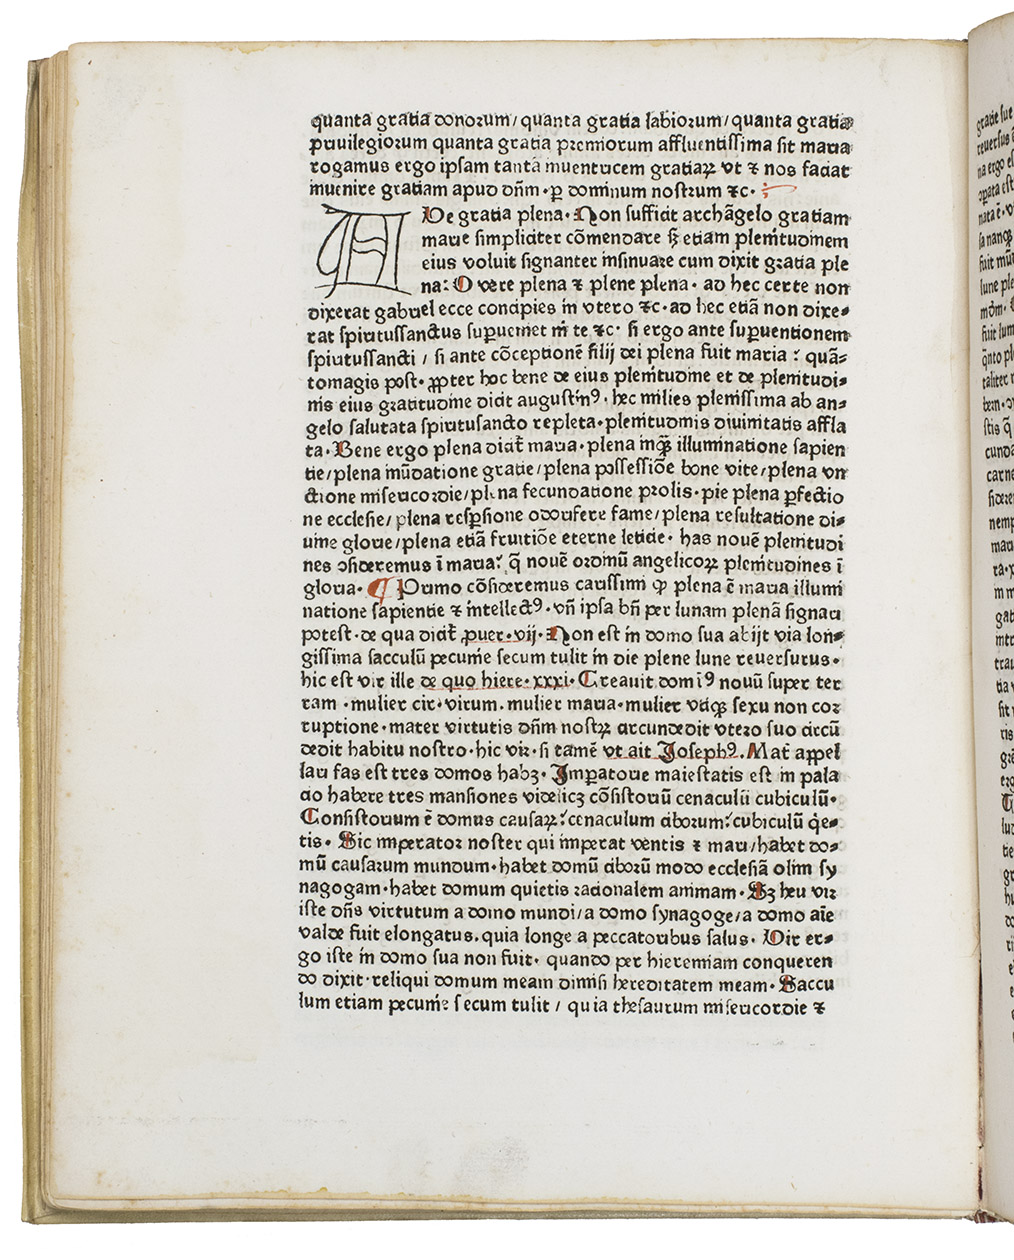 quanta gratia donorum/ quanta gratia labiorum/ quanta gratia
priuilegiorum quanta gratia premiorum affluentissima sit maria
rogamus ergo ipsam tantā inuentricem gratiaꝝ vt ⁊ nos faciat
inuenire gratiam apud dñm · ꝑ dominum nostrum ⁊c ·
AVe gratia plena · Non sufficit archāgelo gratiam
marie simpliciter cōmendare sꝫ etiam plenitudinem
eius voluit signanter insinuare cum dixit gratia ple
na: O vere plena ⁊ plene plena · ad hec certe non
dixerat gabriel ecce concipies in vtero ⁊c · ad hec etiā non dixe⸗
rat spiritussanctus suꝑueniet in te ⁊c · si ergo ante suꝑuentionem
spiritussancti / si ante cōceptionē filij dei plena fuit maria : quā⸗
tomagis post · ꝓpter hoc bene de eius plenitudine et de plenitudi⸗
nis eius gratitudine dicit augustinꝰ · hec milies plenissima ab an⸗
gelo salutata spiritusancto repleta · plenitudinis diuinitatis affla
ta · Bene ergo plena dicit̄ maria · plena inqꝫ illuminatione sapien
tie/ plena mūdatione gratie/ plena possessiōe bone vite/ plena vn
ctione misericordie/ plena fecundatione prolis · pie plena ꝑfectio
ne ecclesie/ plena resꝑsione odorifere fame/ plena resultatione di⸗
uine glorie/ plena etiā fruitiōe eterne leticie · has nouē plenitudi
nes ↄsideremus ī maria: q̄ nouē ordinū angelicoꝝ plenitudines ī
gloria · ¶ Primo cōsideremus carissimi ꝙ plena ē maria illumi
natione sapientie ⁊ intellectꝰ · vñ ipsa bñ per lunam plenā signari
potest · de qua dicit̄ puer · vij · Non est in domo sua abijt via lon⸗
gissima sacculū pecunie secum tulit in die plene lune reuersurus ·
hic est vir ille de quo hiere · xxxi · Creauit dominꝰ nouū super ter
ram · mulier circ · virum . mulier maria · mulier vtiqꝫ sexu non cor
ruptione · mater virtutis dñm nostꝝ circundedit vtero suo circū
dedit habitu nostro · hic vir · si tamē vt ait Josephꝰ . Mat̄ appel
lari fas est tres domos habꝫ · Imꝑatorie maiestatis est in pala
cio habere tres mansiones videlicꝫ cōsistoriū cenaculū cubiculū ·
Consistorium ē domus causaꝝ: cenaculum ciborum: cubiculū q̇e⸗
tis · Sic imperator noster qui imperat ventis ⁊ mari/ habet do⸗
mū causarum mundum · habet domū ciborū modo ecclesiā olim sy
nagogam · habet domum quietis racionalem animam · Sꝫ heu vir
iste dñs virtutum a domo mundi/ a domo synagoge/ a domo aīe
valde fuit elongatus . quia longe a peccatoribus salus · Vir er⸗
go iste in domo sua non fuit · quando per hieremiam conqueren
do dixit · reliqui domum meam dimisi hereditatem meam · Saccu
lum etiam pecunie secum tulit / quia thesaurum misericordie ⁊